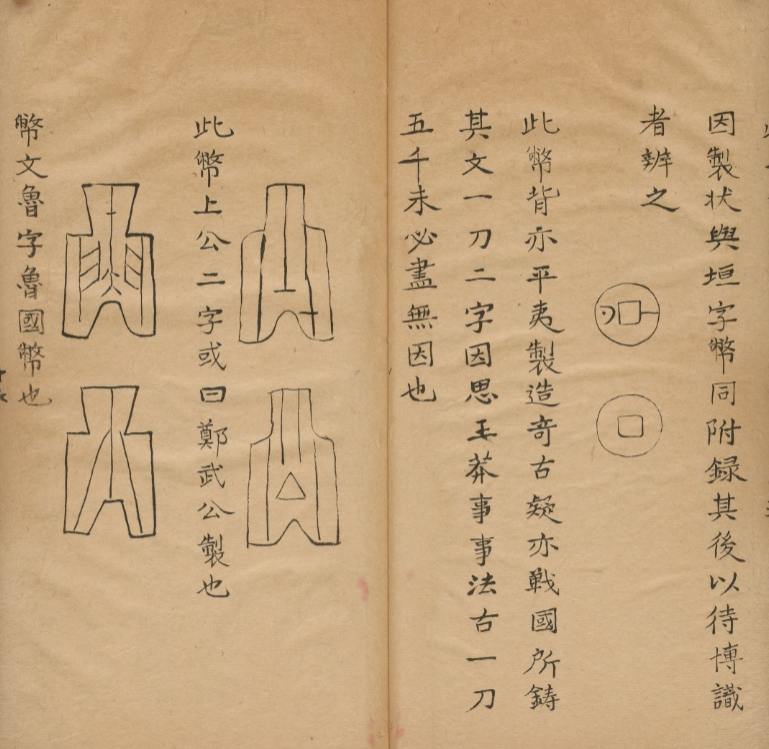 因製状與垣字幣同附録其後以待博識
者辨之
此幣背亦平夷製造奇古疑亦戰國所鋳
其文一刀二字因思王莽事事法古一刀
五千未必盡無因也
此幣上公二字或曰鄭武公製也
幣文魯字魯國幣也